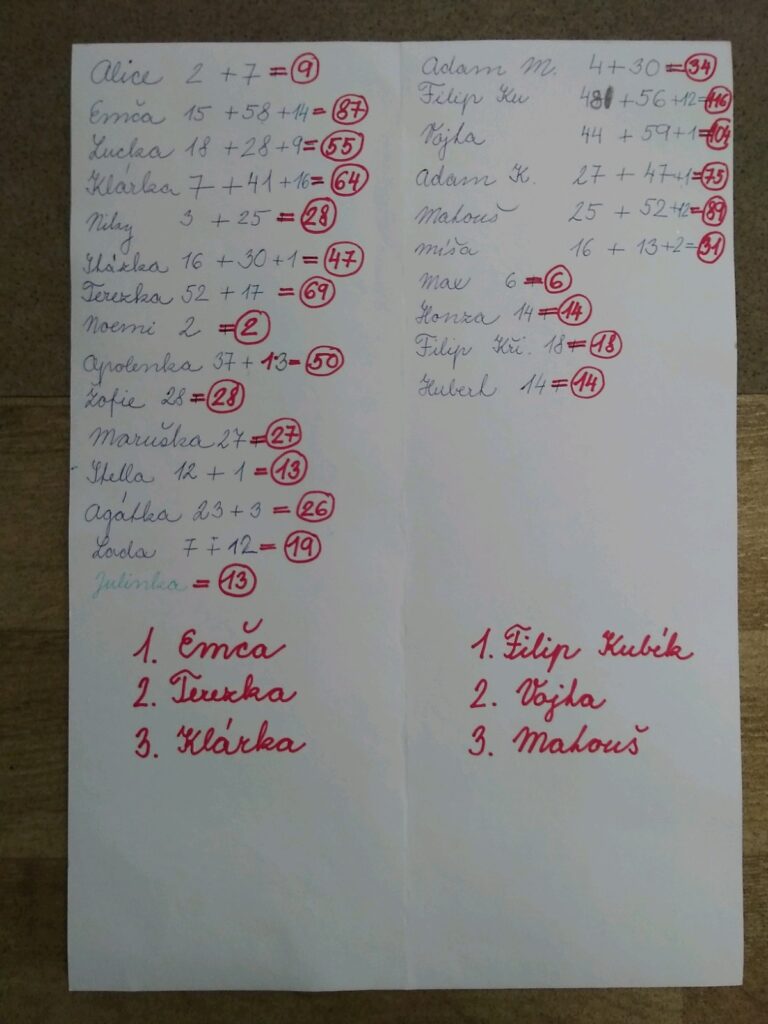 Alice 2 + 7 = 9
Emča 15 + 58 + 14 = 87
Lucka 18 + 28 + 9 = 55
Klárka 7 + 41 + 16 = 64
Niky 3 + 25 = 28
Stázka 16 + 30 + 1 = 47
Terezka 52 + 17 = 69
Noemi 2 = 2
Apolenka 37 + 13 = 50
Žofie 28 = 28
Maruška 27 = 27
Stella 12 + 1 = 13
Agátka 23 + 3 = 26
Lada 7 + 12 = 19
Julinka = 13
1. Emča
2. Terezka
3. Klárka
Adam M. 4 + 30 = 34
Filip Ku 48 + 56 + 12 = 116
Vojta 44 + 59 + 1 = 104
Adam K. 27 + 47 + 1 = 75
Matouš 25 + 52 + 12 = 89
Míša 16 + 13 + 2 = 31
Max 6 = 6
Honza 14 = 14
Filip Kři. 18 = 18
Hubert 14 = 14
1. Filip Kubík
2. Vojta
3. Matouš